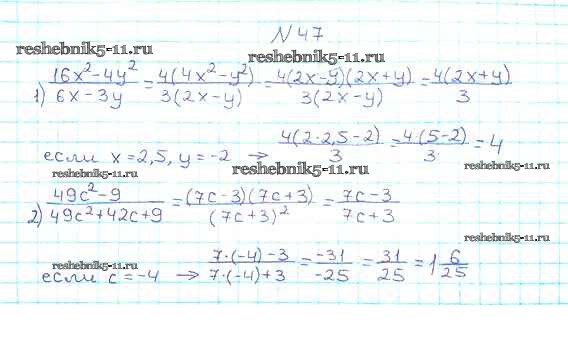 N 47
reshebnik5-11.ru
reshebnik5-11.ru
1) (16x²-4y²)/(6x-3y) = 4(4x²-y²)/3(2x-y) = 4(2x-y)(2x+y)/3(2x-y) = 4(2x+y)/3
если x=2,5, y=-2 → 4(2·2,5-2)/3 = 4·(5-2)/3 = 4
reshebnik5-11.ru
reshebnik5-11.ru
reshebnik5-11.ru
2) (49c²-9)/(49c²+42c+9) = (7c-3)(7c+3)/(7c+3)² = (7c-3)/(7c+3)
reshebnik5-11.ru
reshebnik5-11.ru
если c=-4 → (7·(-4)-3)/(7·(-4)+3) = -31/-25 = 31/25 = 1 6/25